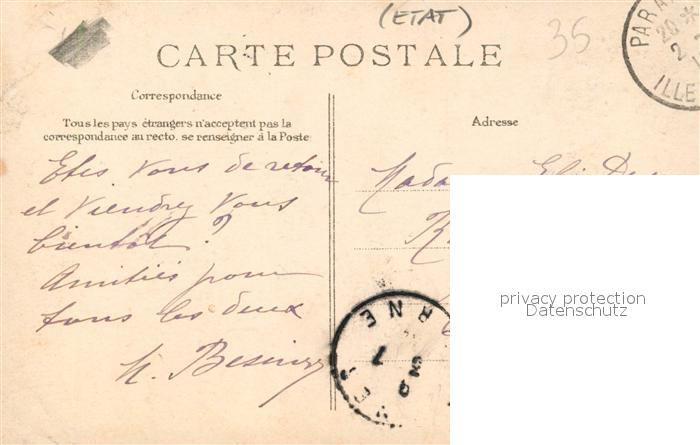 (ETAT)
35
CARTE POSTALE
PARA
20 *
2
ILLE
Correspondance
Tous les pays étrangers n'acceptent pas la
correspondance au recto. se renseigner à la Poste
Adresse
Etes vous de retour
et viendrez vous
bientôt ?
Amitiés pour
tous les deux
Mada
RNE
privacy protection
Datenschutz